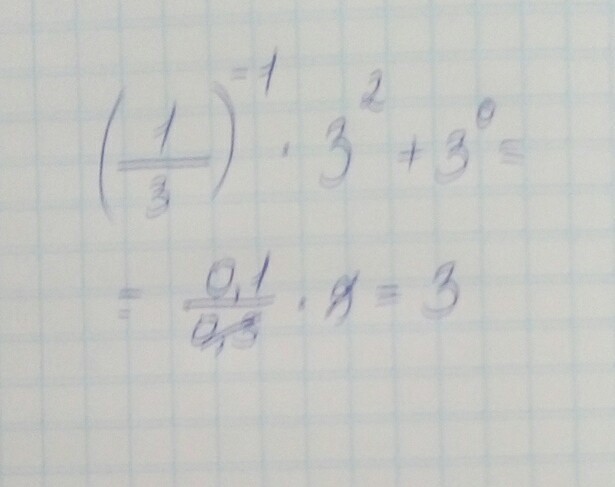 (1/3)⁻¹ · 3² + 3⁰ =
= 0,1/0,3 · 9 = 3